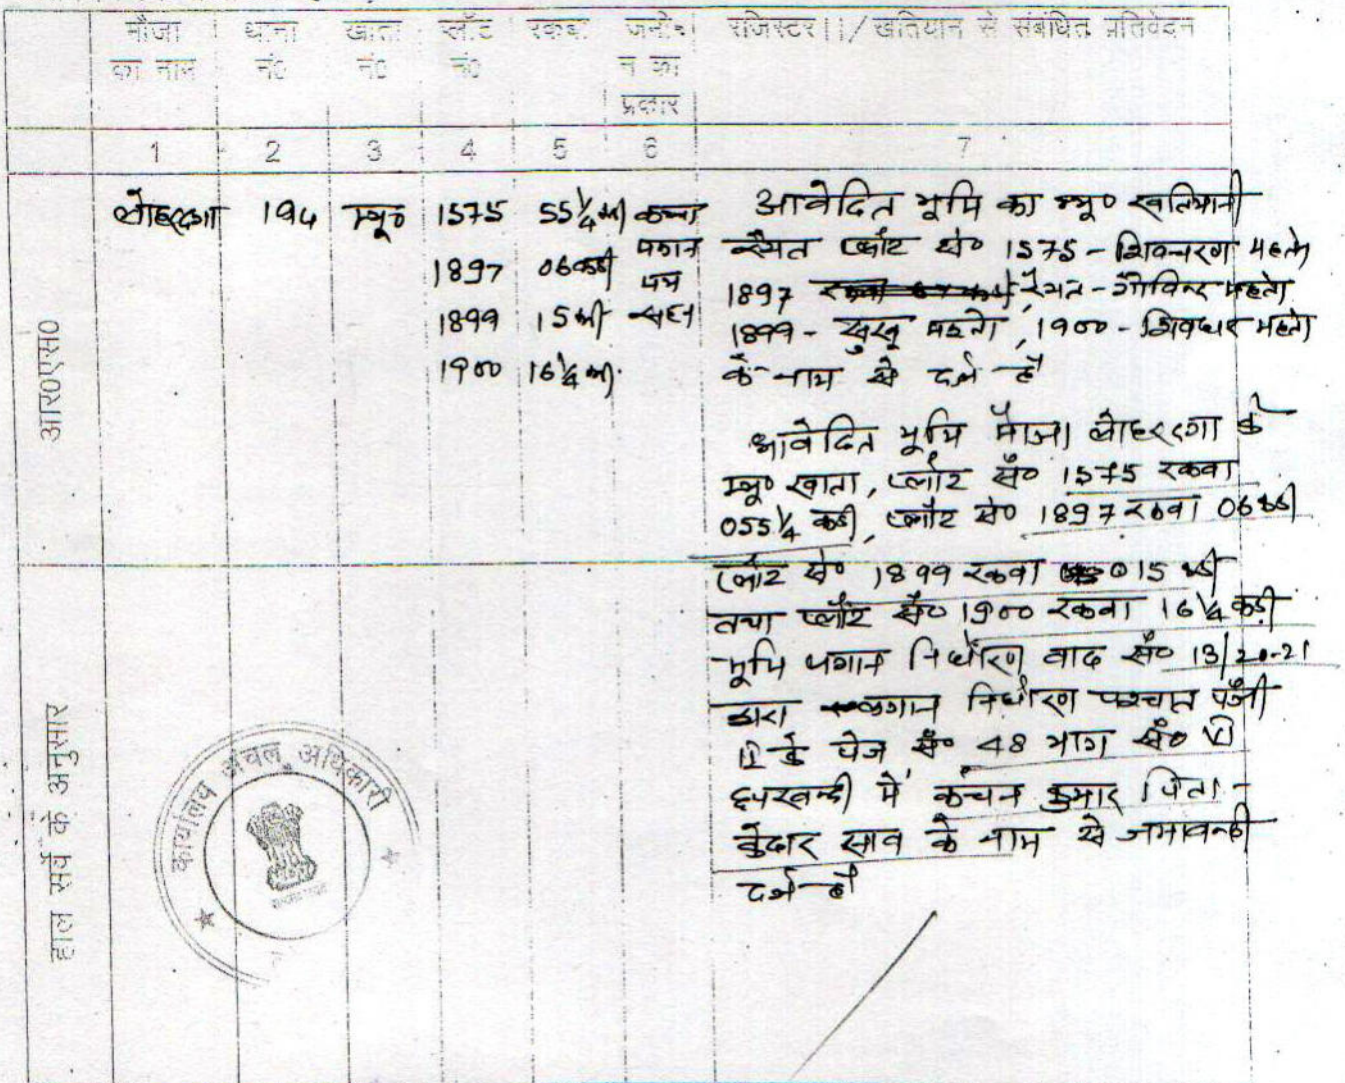 मौजा का नाम | थाना नं० | खाता नं० | प्लॉट नं० | रकबा | जमीन का प्रकार | रजिस्टर।।/ खतियान से संबंधित प्रतिवेदन
1 2 3 4 5 6 7
आर०एस०
लोहरदगा 194 म्यू० 1575 55¼ कड़ी
1897 06 कड़ी
1899 15 कड़ी
1900 16¼ कड़ी
आवेदित भूमि का म्यू० खतियानी
रैयत प्लॉट सं० 1575 - शिवचरण महतो
1897 रैयत - गोविन्द महतो
1899 - सुखू महतो, 1900 - महतो
के नाम से दर्ज है
आवेदित भूमि मौजा लोहरदगा के
म्यू० खाता, प्लॉट सं० 1575 रकबा
055¼ कड़ी, प्लॉट सं० 1897 रकबा 06 कड़ी
प्लॉट सं० 1899 रकबा 015 कड़ी
तथा प्लॉट सं० 1900 रकबा 16¼ कड़ी
भूमि लगान निर्धारण वाद सं० 13/20-21
द्वारा लगान निर्धारण पश्चात पंजी
II के पेज सं० 48 भाग सं० VI
में कंचन कुमार पिता -
केदार साव के नाम से जमाबन्दी
दर्ज है
हाल सर्वे के अनुसार
कार्यालय अंचल अधिकारी